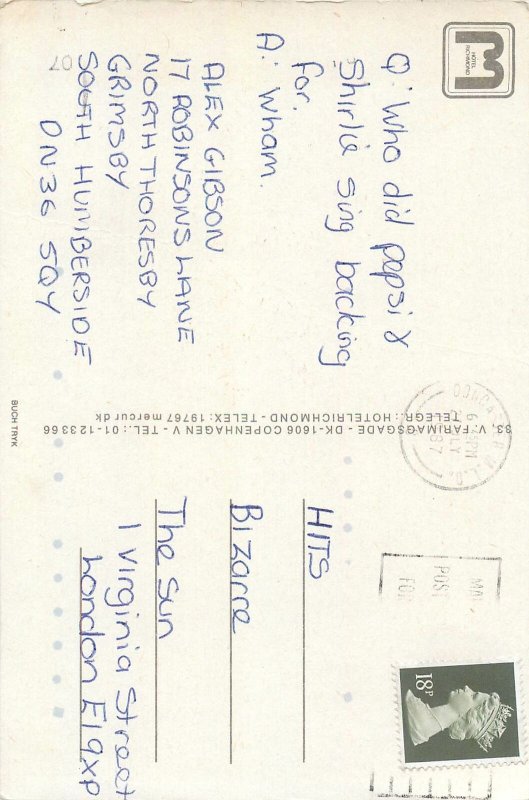 HOTEL
RICHMOND
Q: Who did pepsi &
Shirlie sing backing
for.
A: Wham.
ALEX GIBSON
17 ROBINSONS LANE
NORTH THORESBY
GRIMSBY
SOUTH HUMBERSIDE
DN36 5QY
07
33, V. FARIMAGSGADE - DK-1606 COPENHAGEN V - TEL.: 01-12 33 66
TELEGR.: HOTELRICHMOND - TELEX: 19767 mercur dk
BUCH TRYK
HITS
Bizarre
The Sun
1 Virginia Street
London E19XP
18P